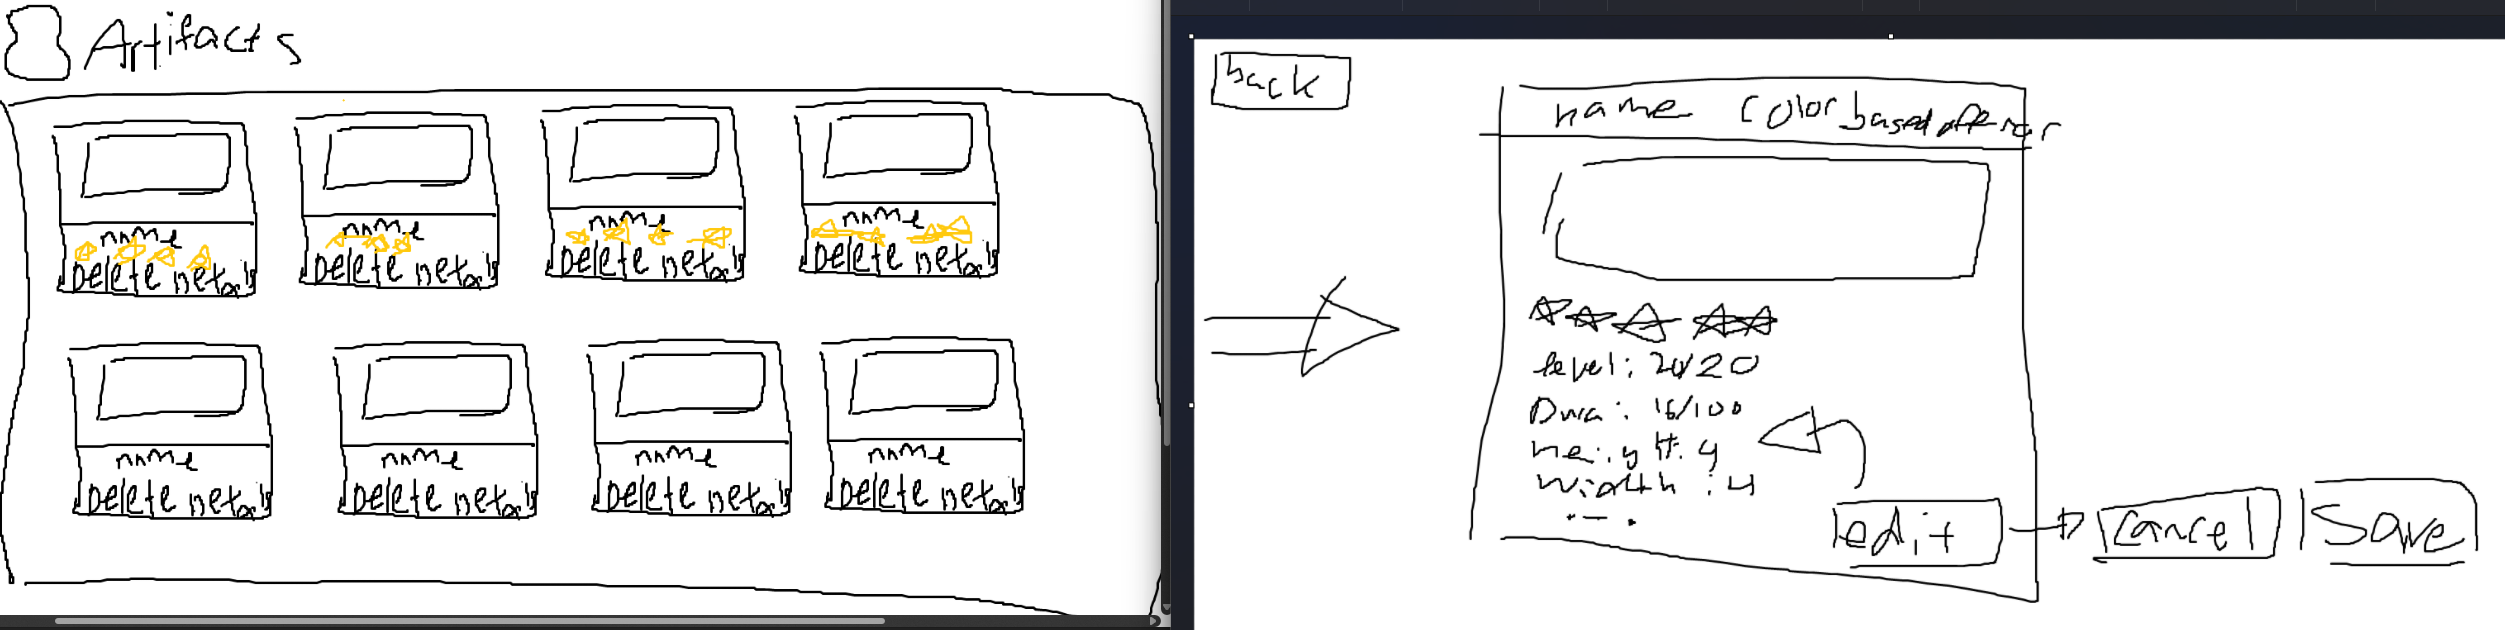 Artifacts
name
Delete Detail
name
Delete Detail
name
Delete Detail
name
Delete Detail
name
Delete Detail
name
Delete Detail
name
Delete Detail
name
Delete Detail
back
name color based off
level: 20/20
height: 4
width: 4
edit
Cancel
Save